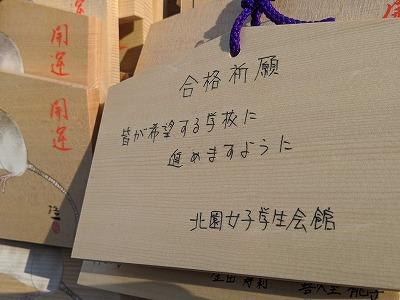 開運
開運
合格祈願
皆が希望する学校に
進めますように
北園女子学生会館